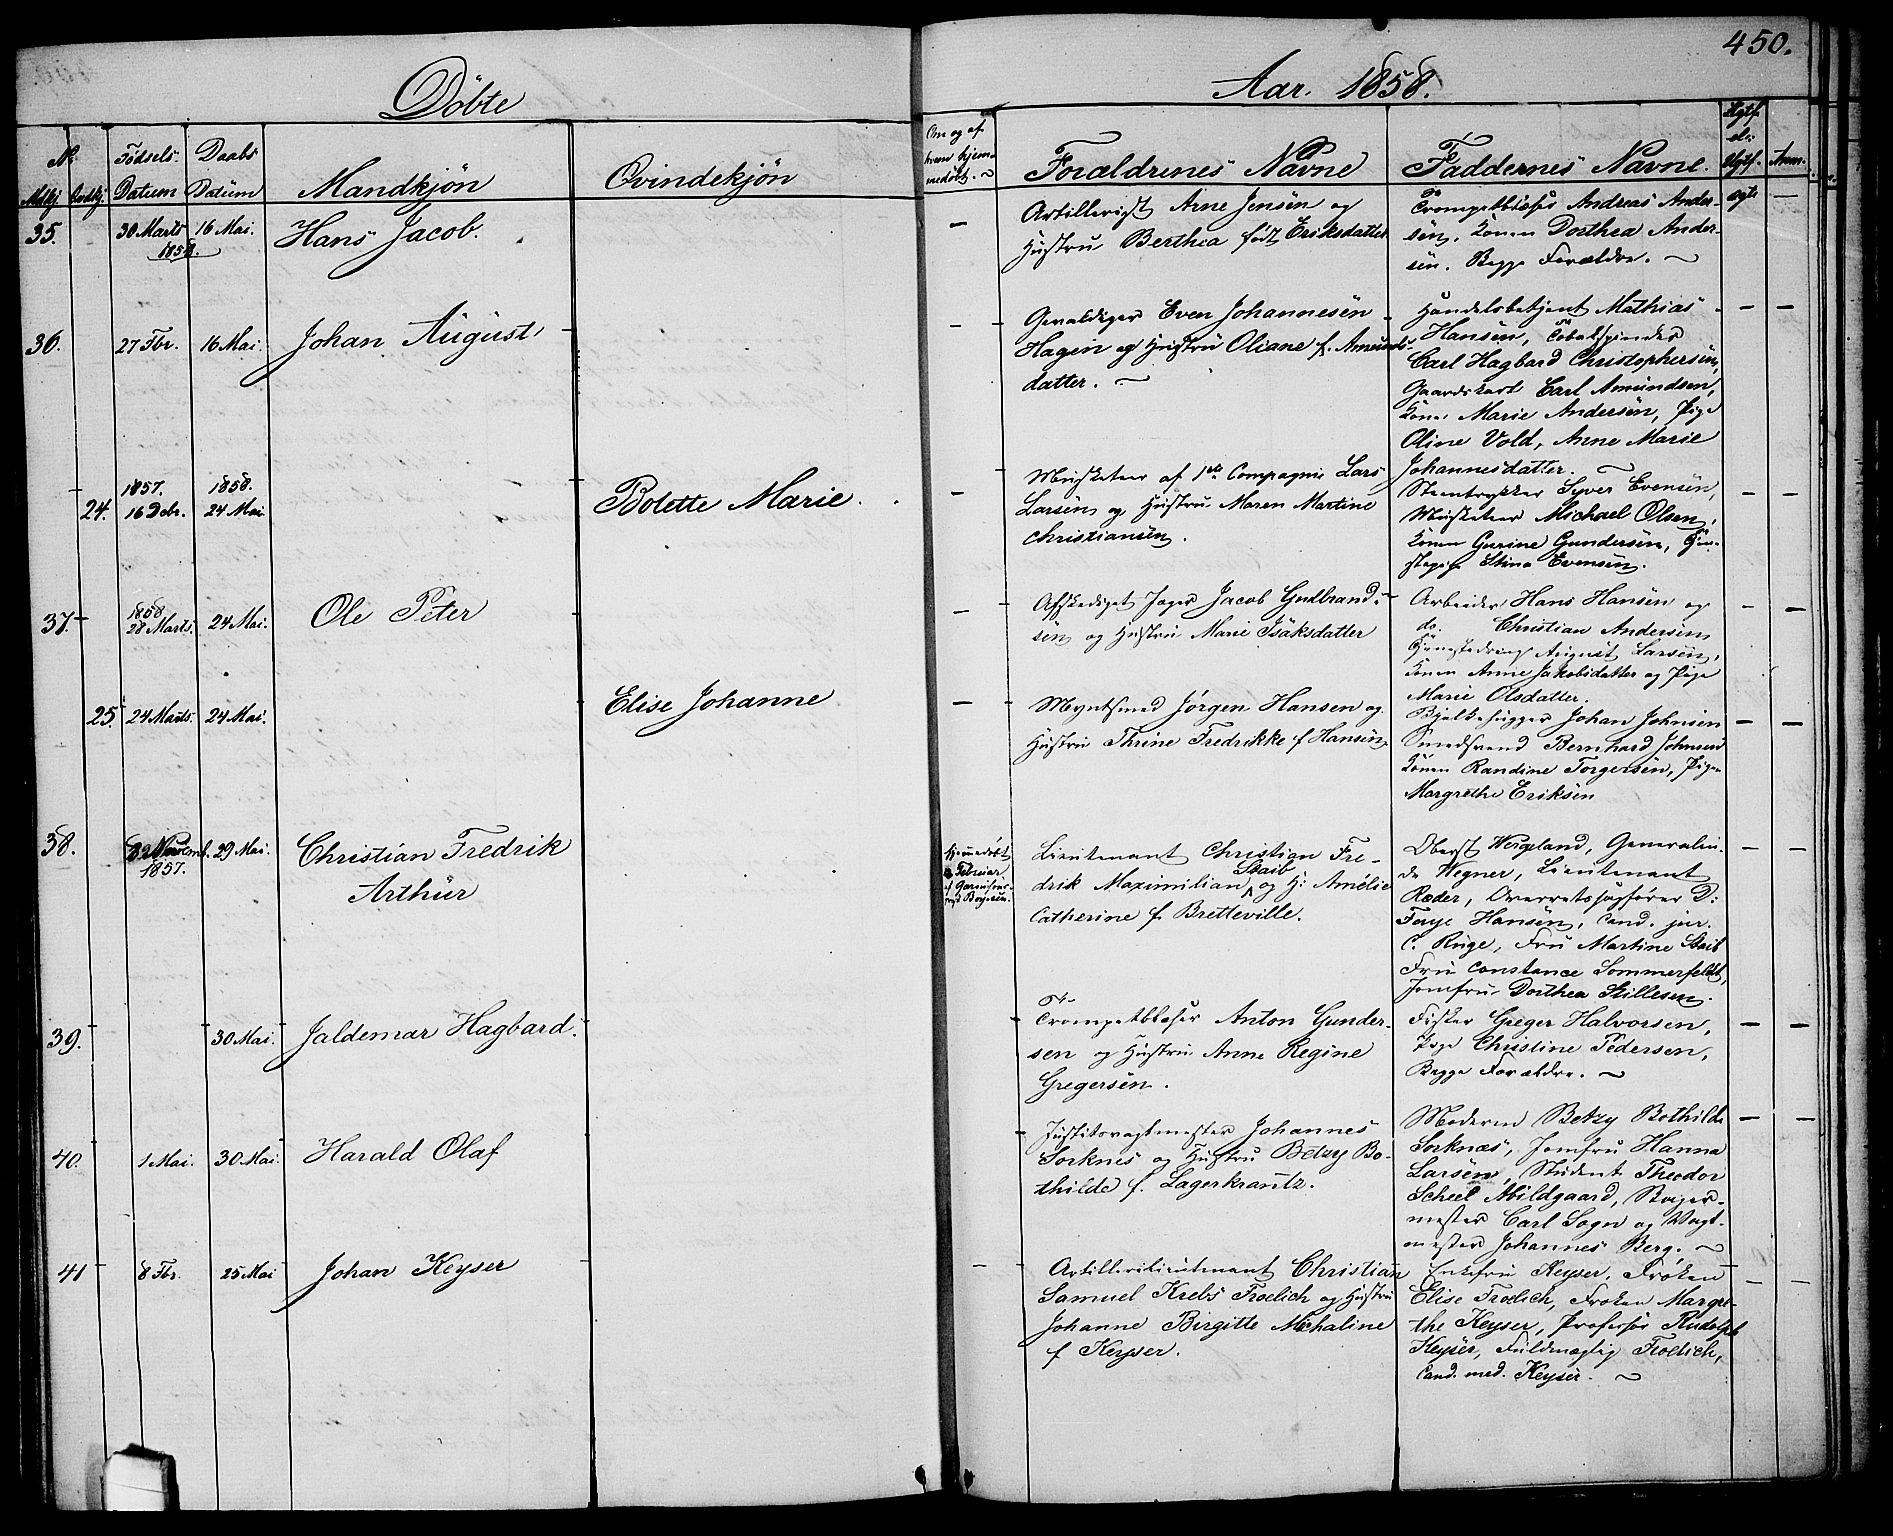 450.
Döbte
Aar. 1858.
No.
Mdkj. Qvdkj.
Födsels-
Datum
Daabs
Datum
Mandkjön
Qvindekjön
Om og af
hvem hjem-
medöbt.
Forældrenes Navne
Faddernes Navne.
Ægtf.
el.
Uægtf.
Anm.
35.
30 Marts
1858.
16 Mai.
Hans Jacob.
—
Artillerist Arne Jensen og
Hustru Berthea föd Eriksdatter
Trompetblæser Andreas Ander-
sen, Konen Dorthea Ander-
sen. Begge Forældre.
ægte
—
36.
27 Fbr.
16 Mai.
Johan August
—
Gevaldiger Even Johannesen
Hagen og Hustru Oliane f. Amunds-
datter.
Handelsbetjent Mathias
Hansen, Tobakspinder
Carl Hagbard Christophersen,
Gaardskarl Carl Amundsen,
Kone Marie Andersen, Pige
Oline Vold, Anne Marie
Johannesdatter.
—
—
24.
1857.
16 Debr.
1858.
24 Mai.
Bolette Marie.
—
Musketeer af 1ste Compagnie Lars
Larsen og Hustru Maren Martine
Christiansen.
Steentrykker Syver Evensen,
Musketeer Michael Olsen,
Konen Gurine Gundersen, Tjene-
stepige Stina Evensen.
—
—
37.
1858
28 Marts.
24 Mai.
Ole Peter
—
Afskediget Jæger Jacob Gudbrand-
sen og Hustru Marie Isaksdatter
Arbeider Hans Hansen og
do. Christian Andersen,
Tjenestedreng August Larsen,
Konen Anne Jakobsdatter og Pige
Marie Olsdatter.
—
—
25
24 Marts.
24 Mai.
Elise Johanne
—
Myntsmed Jørgen Hansen og
Hustru Thrine Fredrikke f Hansen,
Bjelkehugger Johan Johnsen
Smedsvend Bernhard Johnsen
Konen Randine Torgersen, Pige
Margrethe Eriksen
—
—
38.
Novemb.
1857.
29 Mai.
Christian Fredrik
Arthur
Hjemmedöbt
Februar
af Garnisons-
Lieutenant Christian Fre-
drik Maximilian Staib og H: Amélie
Catherine f. Bretteville.
Oberst Wergeland, Generalin-
de Wegner, Lieutenant
Ræder, Overretssagförer D:
Faye Hansen, Cand. jur.
C. Ruge, Fru Martine Staib
Fru Constance Sommerfeldt,
Jomfru Dorthea Stillesen.
—
—
39.
30 Mai.
Jaldemar Hagbard.
Trompetblæser Anton Gunder-
sen og Hustru Anne Regine
Gregersen.
Fisker Greger Halvorsen,
Pige Christine Pedersen,
Begge Forældre.
—
—
40.
1 Mai.
30 Mai.
Harald Olaf
Justitsvagtmester Johannes
Sorknes og Hustru Betzy Bo-
thilde f. Lagerkrantz.
Moderen Betzy Bothilde
Sorknæs, Jomfru Hanna
Larsen, Student Theodor
Scheel Abildgaard, Bager-
mester Carl Sogn og Vagt-
mester Johannes Berg.
—
—
41
8 Fbr.
25 Mai
Johan Keyser
—
Artillerilieutenant Christian
Samuel Krebs Frølich og Hustru
Johanne Birgitte Michaline
f Keyser.
Enkefru Keyser, Frøken
Elise Frølich, Frøken Margre-
the Keyser, Professor Rudolph
Keyser, Fuldmægtig Frølich,
Cand. med. Keyser.
—
—